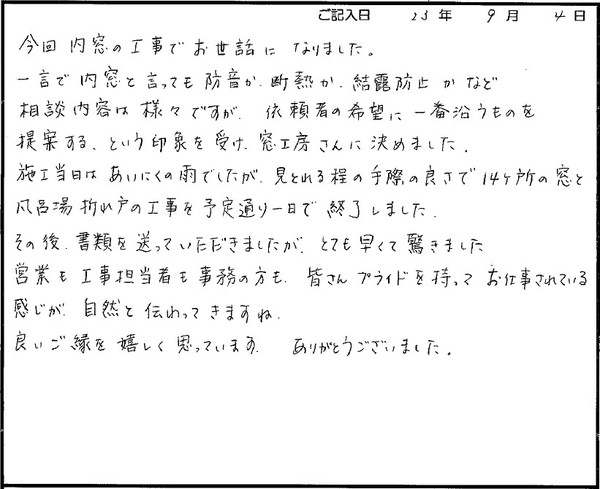 ご記入日 23年 9月 4日
今回 内窓の工事で お世話に なりました。
一言で 内窓と言っても 防音か、断熱か、結露防止か など
相談内容は 様々ですが、依頼者の希望に 一番沿うものを
提案する、という印象を受け、窓工房さんに 決めました。
施工当日は あいにくの雨でしたが、見とれる程の手際の良さで 14ヶ所の窓と
風呂場 折れ戸の工事を 予定通り一日で 終了しました。
その後、書類を送っていただきましたが、とても早くて 驚きました
営業も 工事担当者も 事務の方も、皆さん プライドを持って お仕事されている
感じが、自然と 伝わって きますね。
良いご縁を 嬉しく 思っています。 ありがとうございました。